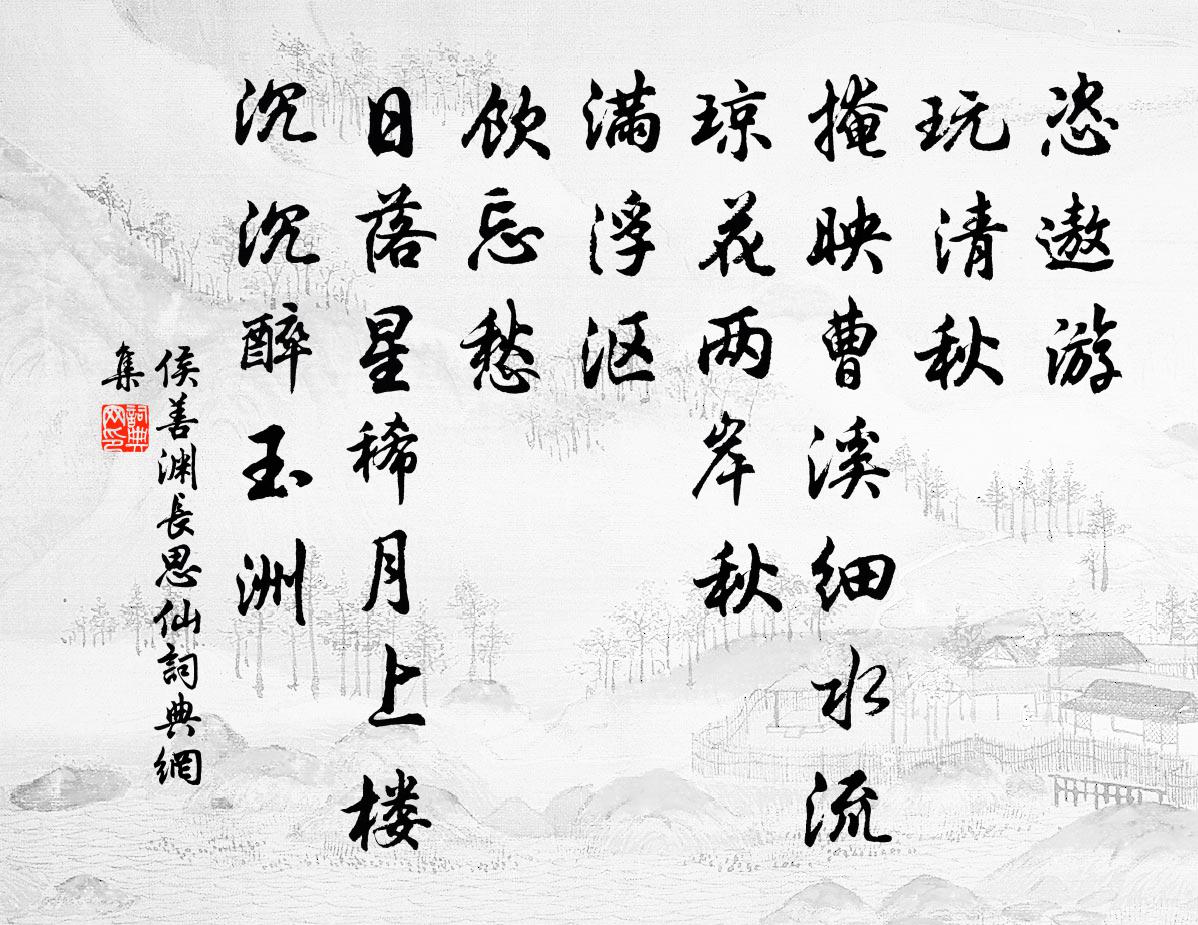 恣遨游
玩清秋
掩映曹溪细水流
琼花两岸秋
满浮沤
饮忘愁
日落星稀月上楼
沉沉醉玉洲
侯善渊長思仙詞典網
集
詞典
网印